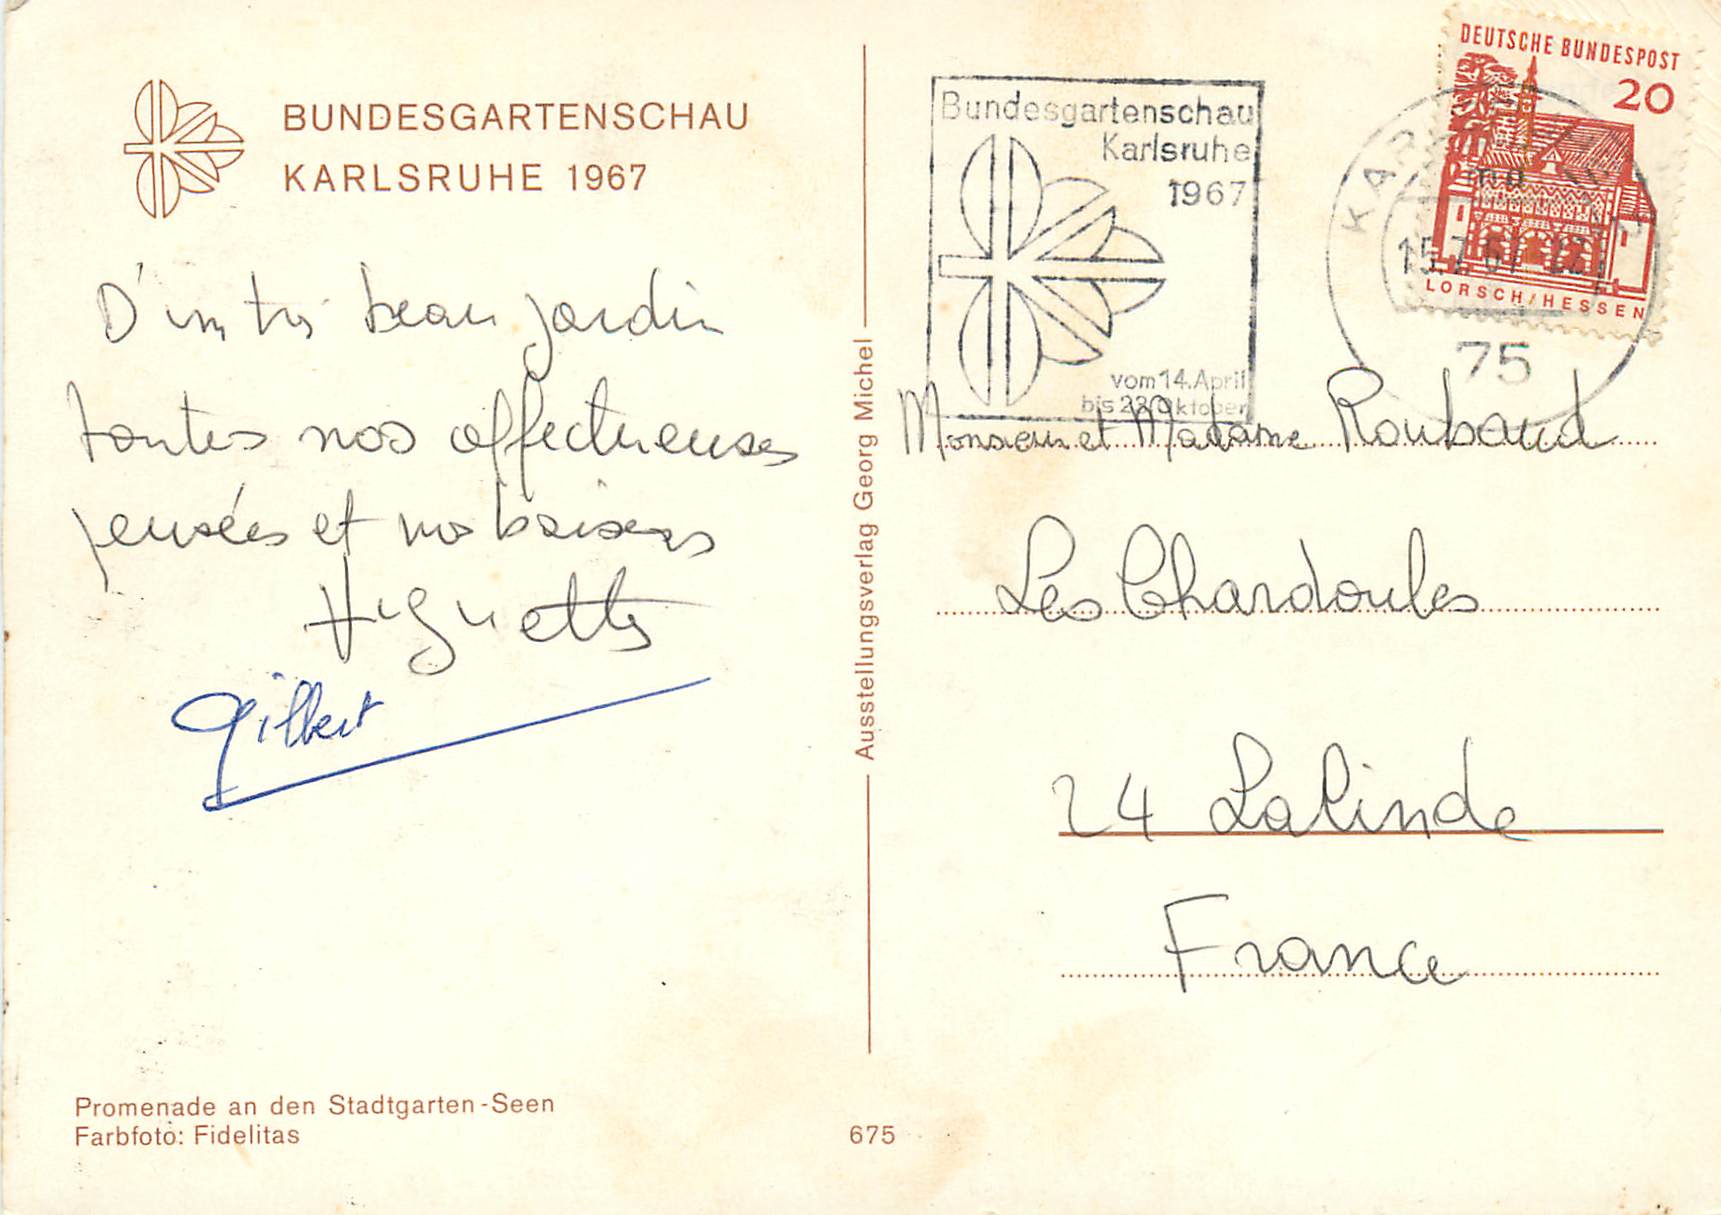 BUNDESGARTENSCHAU
KARLSRUHE 1967
D'un très beau jardin
toutes nos affectueuses
pensées et nos baisers
Huguette
Gilbert
Promenade an den Stadtgarten-Seen
Farbfoto: Fidelitas
Ausstellungsverlag Georg Michel
675
Bundesgartenschau
Karlsruhe
1967
vom 14. April
bis 23. Oktober
DEUTSCHE BUNDESPOST
20
LORSCH/HESSEN
15.7.67
75
Monsieur et Madame Roubaud
Les Chardoules
24 Lalinde
France